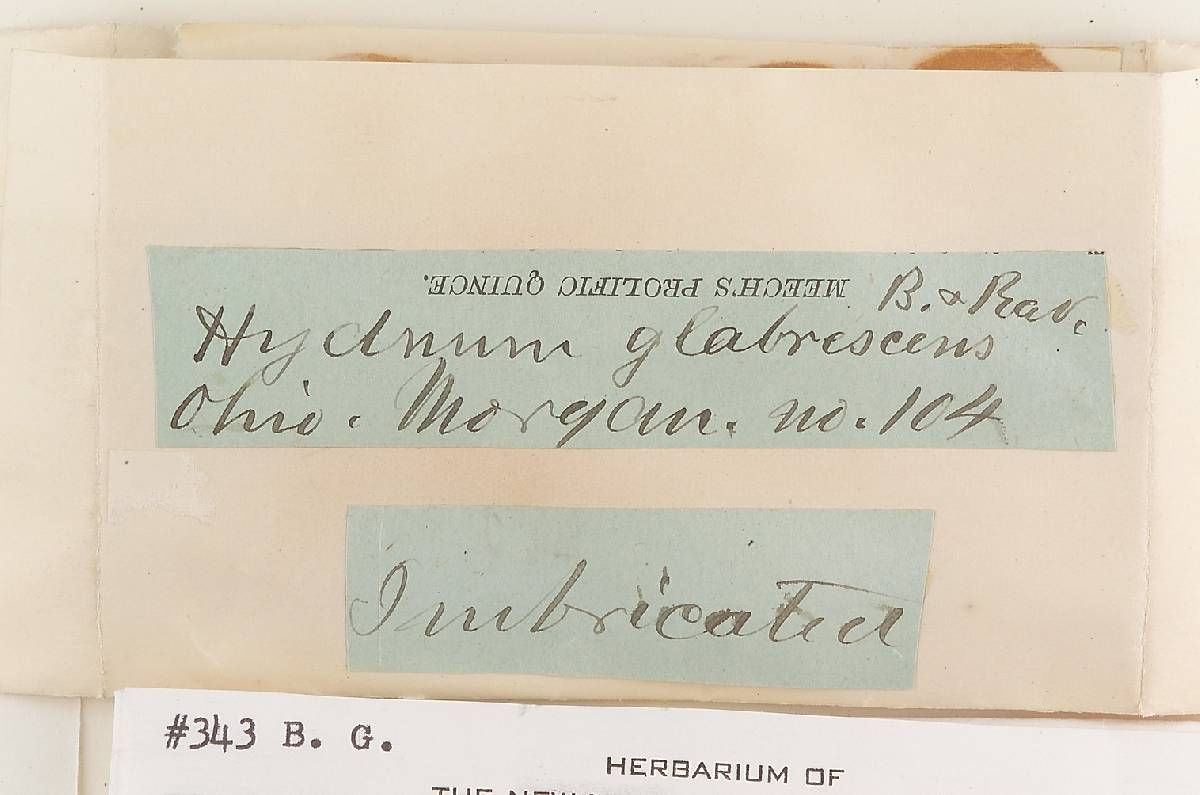 MEECH'S PROLIFIC QUINCE.
B. & Rav.
Hydnum glabrescens
Ohio. Morgan. no. 104
Imbricated
#343 B. G.
HERBARIUM OF
THE NEW